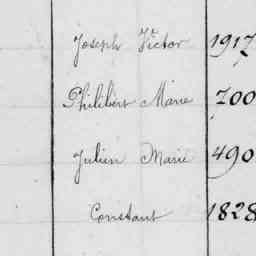 Joseph Victor 1917
Philibert Marie 700
Julien Marie 490
Constant 1828